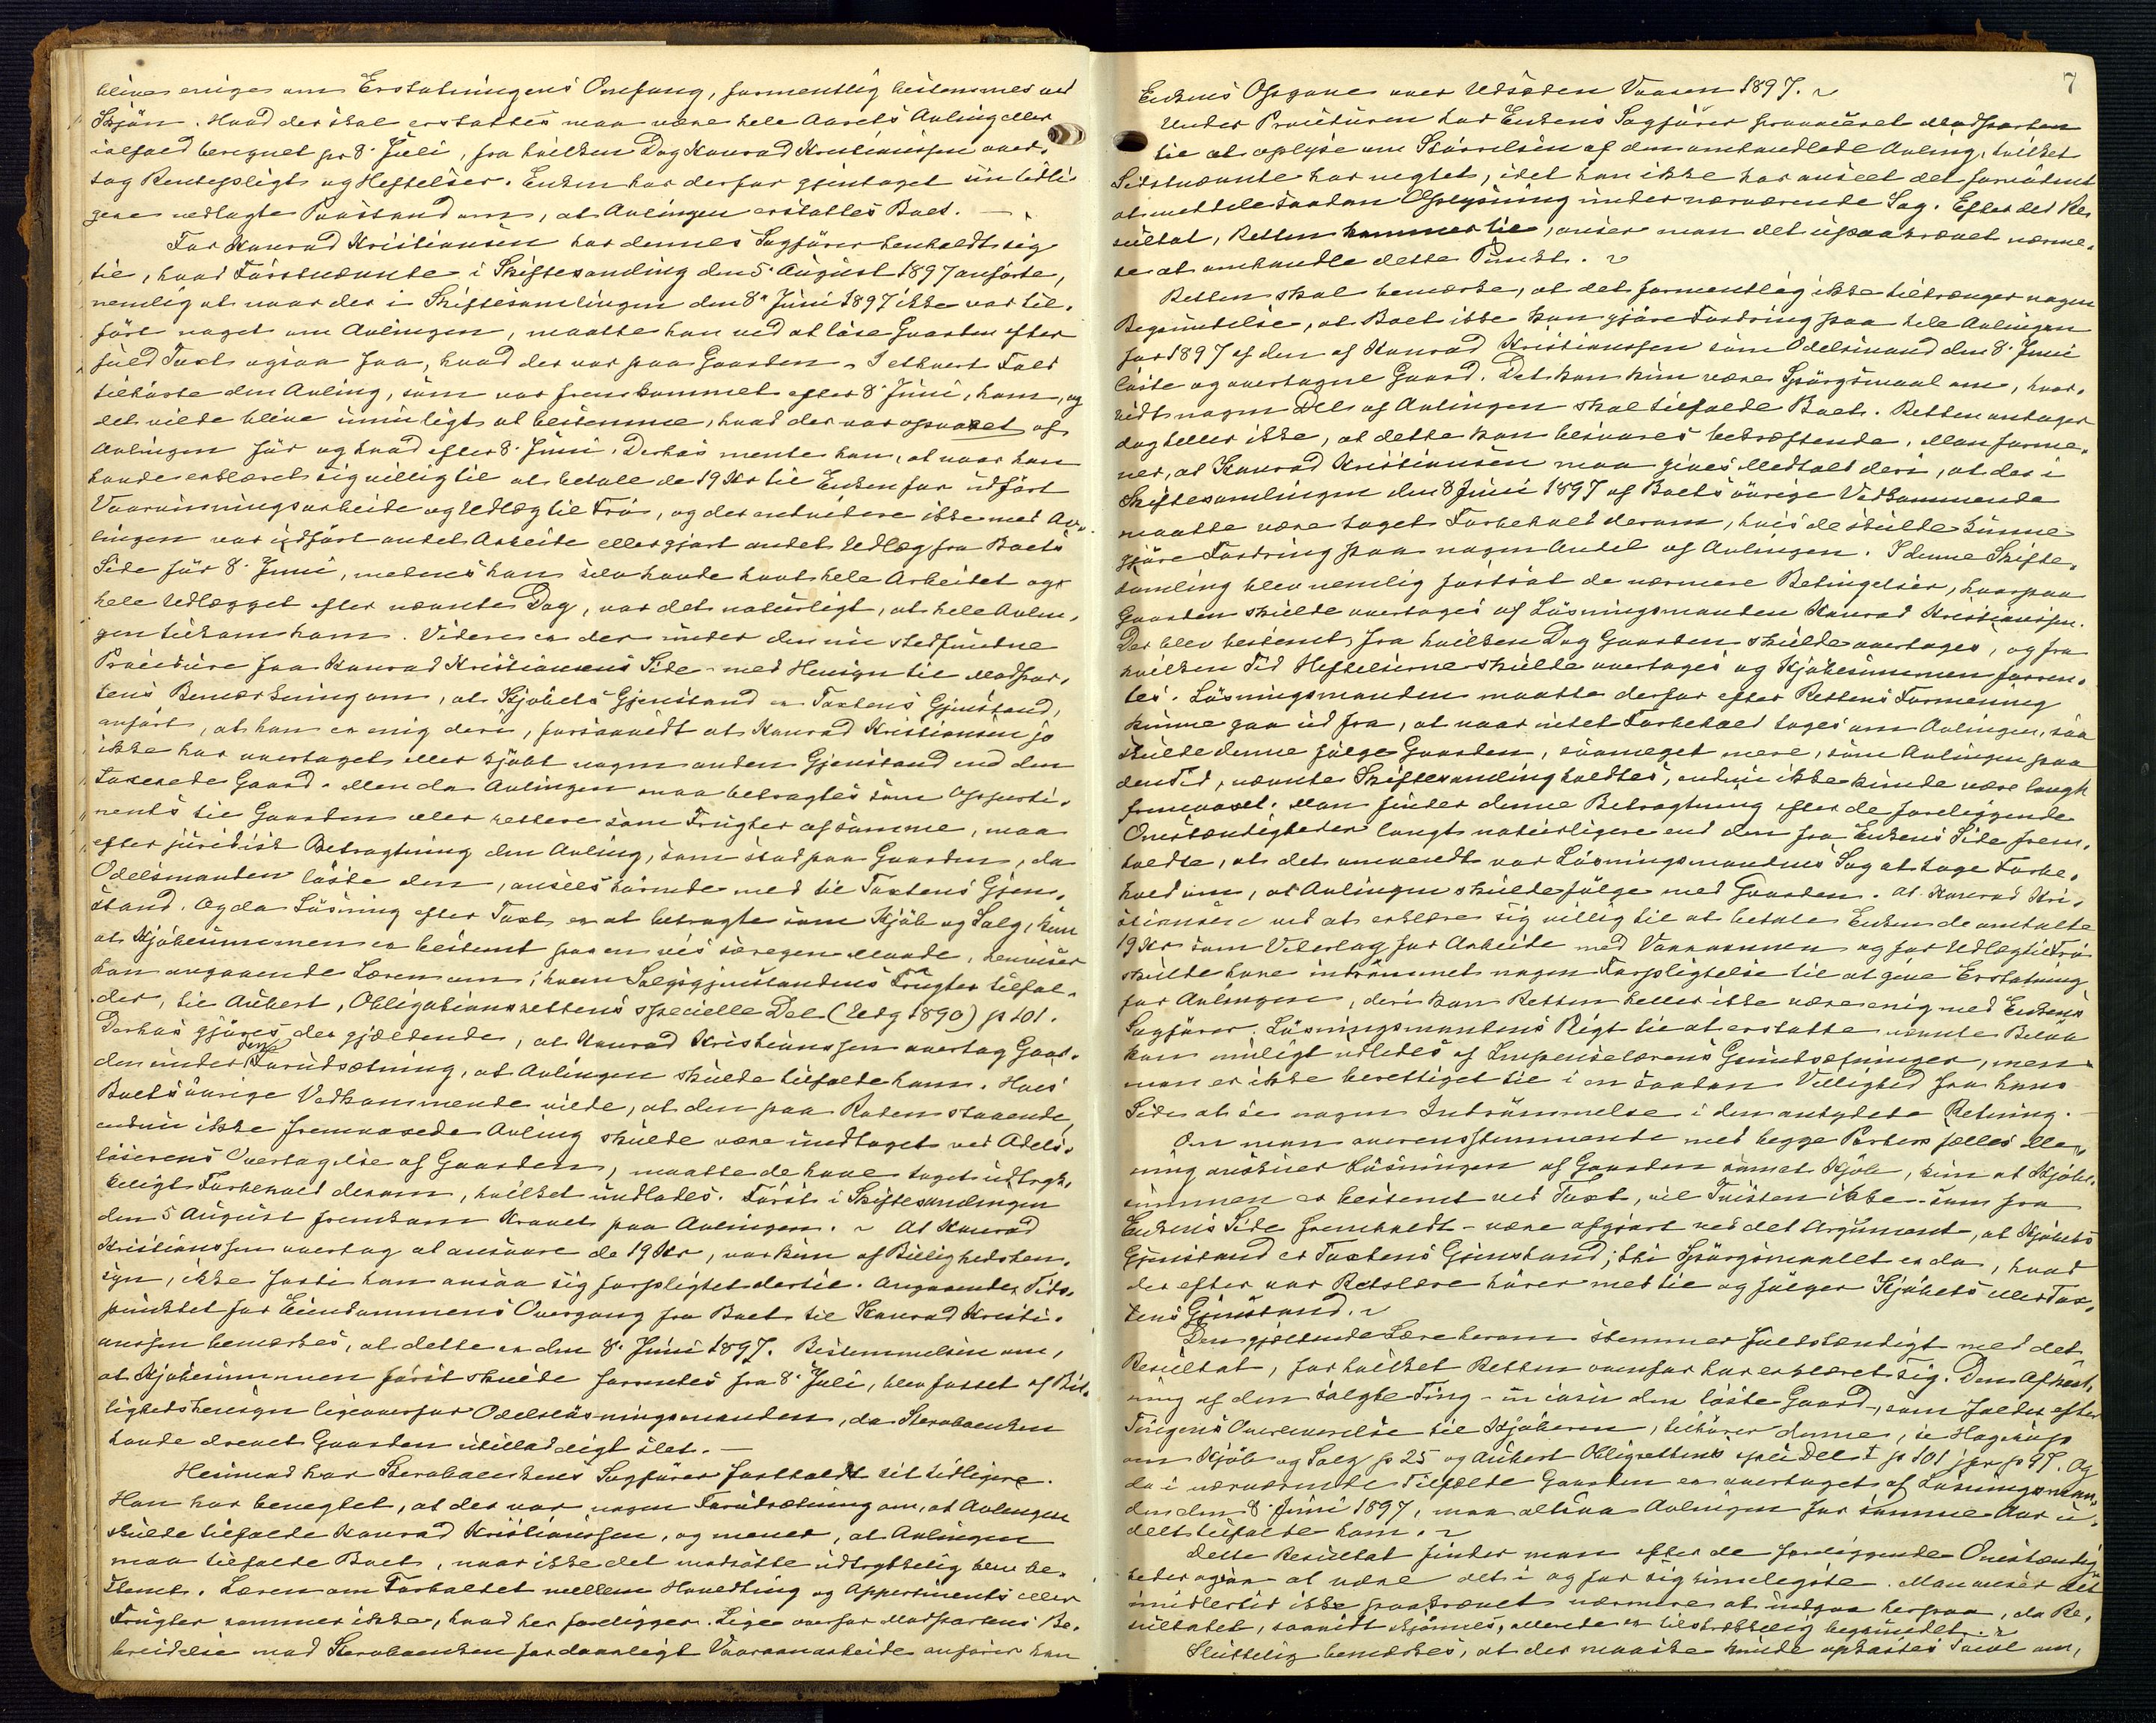 blives enige om Erstatningens Omfang, formentlig bestemmes ved
Skjön. Hvad der skal erstattes maa være hele Aarets Avling eller
ialfald beregnet pr 8. Juli, fra hvilken Dag Konrad Kristianssen over-
tog Rentepligt og Heftelser. Enken har derfor gjentaget sin tidli-
gere nedlagte Paastand om, at Avlingen erstattes Boet. —
For Konrad Kristiansen har dennes Sagförer henholdt sig
til, hvad Förstnævnte i Skiftesamling den 5. August 1897 anförte,
nemlig at naar der i Skiftesamlingen den 8. Juni 1897 ikke var til-
fört noget om Avlingen, maatte han ved at löse Gaarden efter
fuld Taxt ogsaa faa, hvad der var paa Gaarden. I ethvert Fald
tilhörte den Avling, som var fremkommet efter 8. Juni, ham, og
det vilde blive umuligt at bestemme, hvad der var opvoxet af
Avlingen för og hvad efter 8. Juni. Derhos mente han, at naar han
havde erklæret sig villig til at betale de 19 Kr til Enken for udfört
Vaaronningsarbeide og Udlæg til Frö, og der endvidere ikke med Av-
lingen var udfört andet Arbeide eller gjort andet Udlæg fra Boets
Side för 8. Juni, medens han selv havde havt hele Arbeidet og
hele Udlægget efter nævnte Dag, var det naturligt, at hele Avlin-
gen tilkom ham. Videre er der under den nu stedfundne
Procedure fra Konrad Kristiansens Side med Hensyn til Modpar-
tens Bemærkning om, at Kjöbets Gjenstand er Taxtens Gjenstand,
anfört, at han er enig deri, forsaavidt at Konrad Kristiansen jo
ikke har overtaget eller kjöbt nogen anden Gjenstand end den
taxerede Gaard. Men da Avlingen maa betragtes som Apperti-
nents til Gaarden eller rettere som Frugter af samme, maa
efter juridisk Betragtning den Avling, som stod paa Gaarden, da
Odelsmanden löste den, ansees hörende med til Taxtens Gjen-
stand. Og da Lösning efter Taxt er at betragte som Kjöb og Salg, kun
at Kjöbesummen er bestemt paa en vis særegen Maade, henviser
han angaaende Læren om, hvem Salgsgjenstandens Frugter tilfal-
der, til Aubert, Obligationsrettens specielle Del (Udg 1890) p 101.
Derhos gjöres det gjældende, at Konrad Kristianssen overtog Gaar-
den under den Forudsætning, at Avlingen skulde tilfalde ham. Hvis
Boets övrige Vedkommende vilde, at den paa Roden staaende,
endnu ikke fremvoxede Avling skulde være undtaget ved Odels-
löserens Overtagelse af Gaarden, maatte de have taget udtryk-
keligt Forbehold derom, hvilket undlodes. Först i Skiftesamlingen
den 5 August fremkom Kravet paa Avlingen. At Konrad
Kristianssen overtog at ansvare de 19 Kr, var kun af Billighedshen-
syn, ikke fordi han ansaa sig forpligtet dertil. Angaaende Tids-
punktet for Eiendommens Overgang fra Boet til Konrad Kristi-
anssen bemærkes, at dette er den 8. Juni 1897. Bestemmelsen om,
at Kjöbesummen först skulde forrentes fra 8. Juli, blev fattet af Bil-
lighedshensyn ligeoverfor Odelslösningsmanden, da Sterboenken
havde drevet Gaarden utilladeligt slet. —
Herimod har Sterboenkens Sagförer fastholdt sit tidligere.
Han har benegtet, at der var nogen Forudsætning om, at Avlingen
skulde tilfalde Konrad Kristianssen, og mener, at Avlingen
maa tilfalde Boet, naar ikke det modsatte udtrykkelig blev be-
stemt. Læren om Forholdet mellem Hovedting og Appertinents eller
Frugter rammer ikke, hvad her foreligger. Lige overfor Modpartens Be-
breidelse mod Sterboenken for daarligt Vaaronnarbeide anförer han
7
Enkens Opgave over Udsæden Vaaren 1897.
Under Proceduren har Enkens Sagförer provoceret Modparten
til at oplyse om Störrelsen af den omhandlede Avling, hvilket
Sidstnævnte har negtet, idet han ikke har anseet det fornödent
at meddele saadan Oplysning under nærværende Sag. Efter det Re-
sultat, Retten kommer til, anser man det upaakrævet nærme-
re at omhandle dette Punkt.
Retten skal bemærke, at det formentlig ikke tiltrænger nogen
Begrundelse, at Boet ikke kan gjöre Fordring paa hele Avlingen
for 1897 af den af Konrad Kristianssen som Odelsmand den 8. Juni
löste og overtagne Gaard. Det kan kun være Spörgsmaal om, hvor-
vidt nogen Del af Avlingen skal tilfalde Boet. Retten antager
dog heller ikke, at dette kan besvares bekræftende. Man forme-
ner, at Konrad Kristiansen maa gives Medhold deri, at der i
Skiftesamlingen den 8 Juni 1897 af Boets övrige Vedkommende
maatte være taget Forbehold derom, hvis de skulde kunne
gjöre Fordring paa nogen Andel af Avlingen. I denne Skifte-
samling blev nemlig fastsat de nærmere Betingelser, hvorpaa
Gaarden skulde overtages af Lösningsmanden Konrad Kristianssen.
Der blev bestemt, fra hvilken Dag Gaarden skulde overtages, og fra
hvilken Tid Heftelserne skulde overtages og Kjöbesummen forren-
tes. Lösningsmanden maatte derfor efter Rettens Formening
kunne gaa ud fra, at naar intet Forbehold toges om Avlingen, saa
skulde denne fölge Gaarden, saameget mere, som Avlingen paa
den Tid, nævnte Skiftesamling holdtes, endnu ikke kunde være langt
fremvoxet. Man finder denne Betragtning efter de foreliggende
Omstændigheder langt naturligere end den fra Enkens Side frem-
holdte, at det omvendt var Lösningsmandens Sag at tage Forbe-
hold om, at Avlingen skulde fölge med Gaarden. At Konrad Kri-
stiansen ved at erklære sig villig til at betale Enken de omtalte
19 Kr som Vederlag for Arbeide med Vaaronnen og for Udlæg til Frö
skulde have indrömmet nogen Forpligtelse til at give Erstatning
for Avlingen, deri kan Retten heller ikke være enig med Enkens
Sagförer. Lösningsmandens Pligt til at erstatte nævnte Belöb
kan muligt udledes af Impenselærens Grundsætninger, men
man er ikke berettiget til i en saadan Villighed fra hans
Side at se nogen Indrömmelse i den antydede Retning.
Om man overensstemmende med begge Parters fælles Me-
ning anskuer Lösningen af Gaarden som et Kjöb, kun at Kjöbe-
summen er bestemt ved Taxt, vil Tvisten ikke – som fra
Enkens Side fremholdt – være afgjort ved det Argument, at Kjöbets
Gjenstand er Taxtens Gjenstand; thi Spörgsmaalet er da, hvad
der efter vor Retslære hörer med til og fölger Kjöbets eller Tax-
tens Gjenstand.
Den gjældende Lære herom stemmer fuldstændigt med det
Resultat, for hvilket Retten ovenfor har erklæret sig. Den Afkast-
ning af den solgte Ting – in casu den löste Gaard –, som falder efter
Tingens Overleverelse til Kjöberen, tilhörer denne, se Hagerup
om Kjöb og Salg p 25 og Aubert Obligrettens spec Del I p 101 jfr p 97. Og
da i nærværende Tilfælde Gaarden er overtaget af Lösningsman-
den den 8. Juni 1897, maa altsaa Avlingen for samme Aar u-
delt tilfalde ham.
Dette Resultat finder man efter de foreliggende Omstændig-
heder ogsaa at være det i og for sig rimeligste. Man anser det
imidlertid ikke paakrævet nærmere at indgaa herpaa, da Re-
sultatet, saavidt skjönnes, allerede er tilstrækkelig begrundet.
Sluttelig bemærkes, at der maaske kunde opkastes Tvivl om,